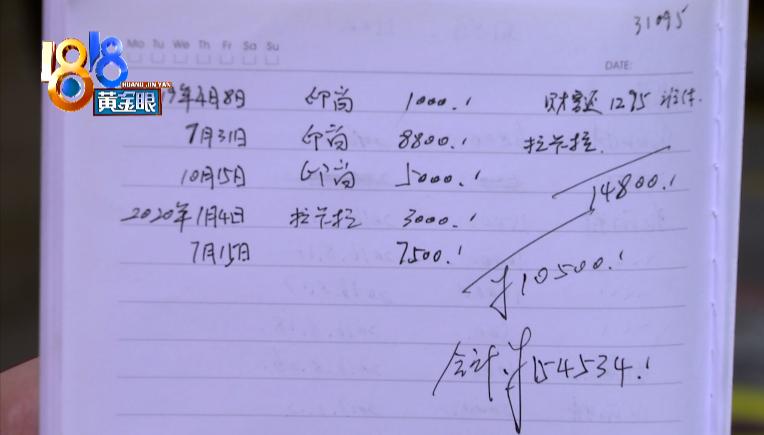 31095
Mo Tu We Th Fr Sa Su
DATE:
1818
HUANG JIN YAN
黄金眼
年4月8日 印尚 1000.! 1295
7月31日 印尚 8800.! 拉卡拉
10月15日 印尚 5000.!
14800.!
2020年1月4日 拉卡拉 3000.!
7月15日 7500.!
¥10500.!
合计:¥154534.!